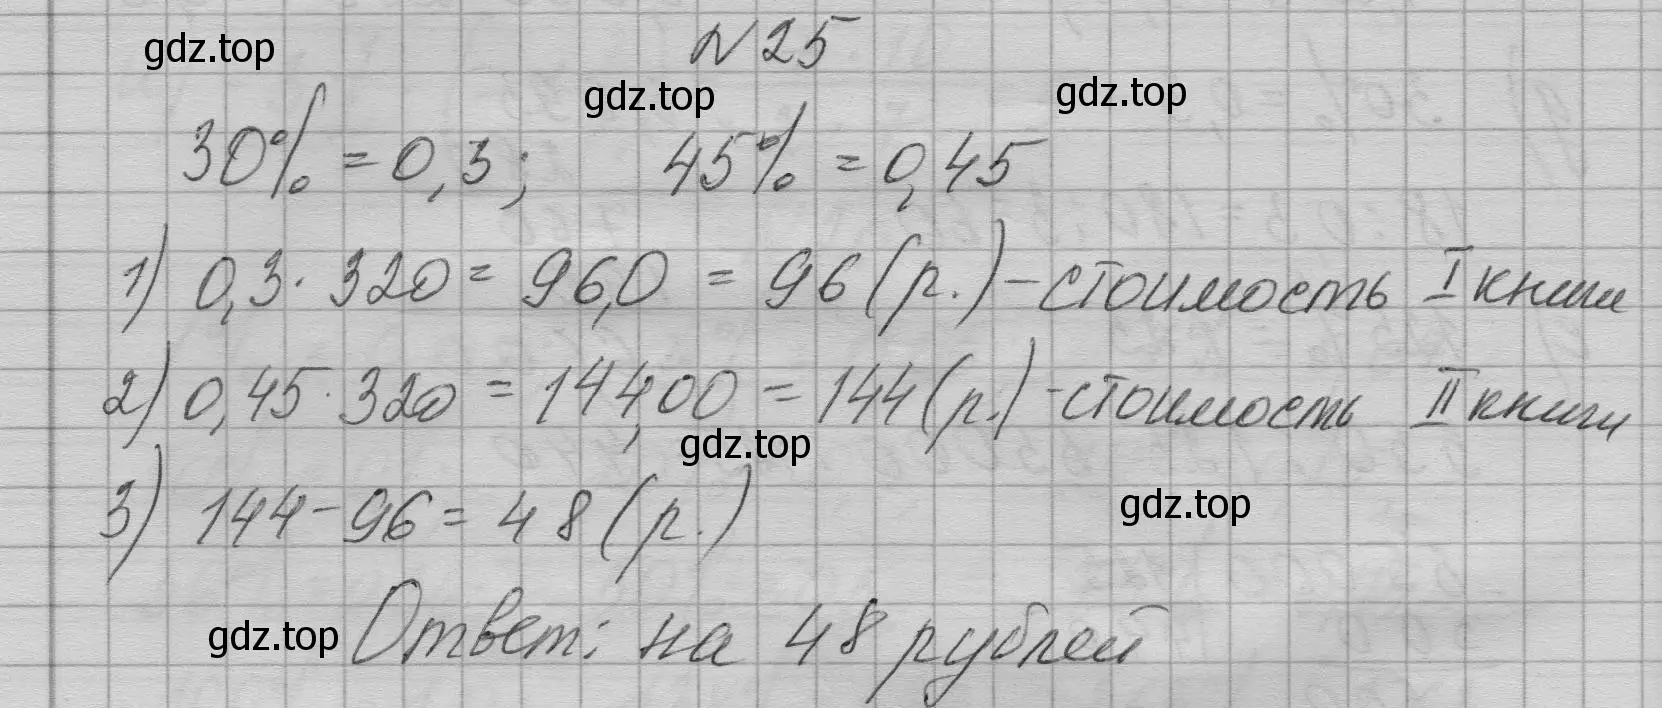 gdz.top
№ 25
gdz.top
gdz.top
30% = 0,3; 45% = 0,45
1) 0,3 · 320 = 96,0 = 96 (р.) - стоимость I книги
2) 0,45 · 320 = 144,00 = 144 (р.) - стоимость II книги
gdz.top
3) 144 - 96 = 48 (р.)
gdz.top
gdz.top
Ответ: на 48 рублей